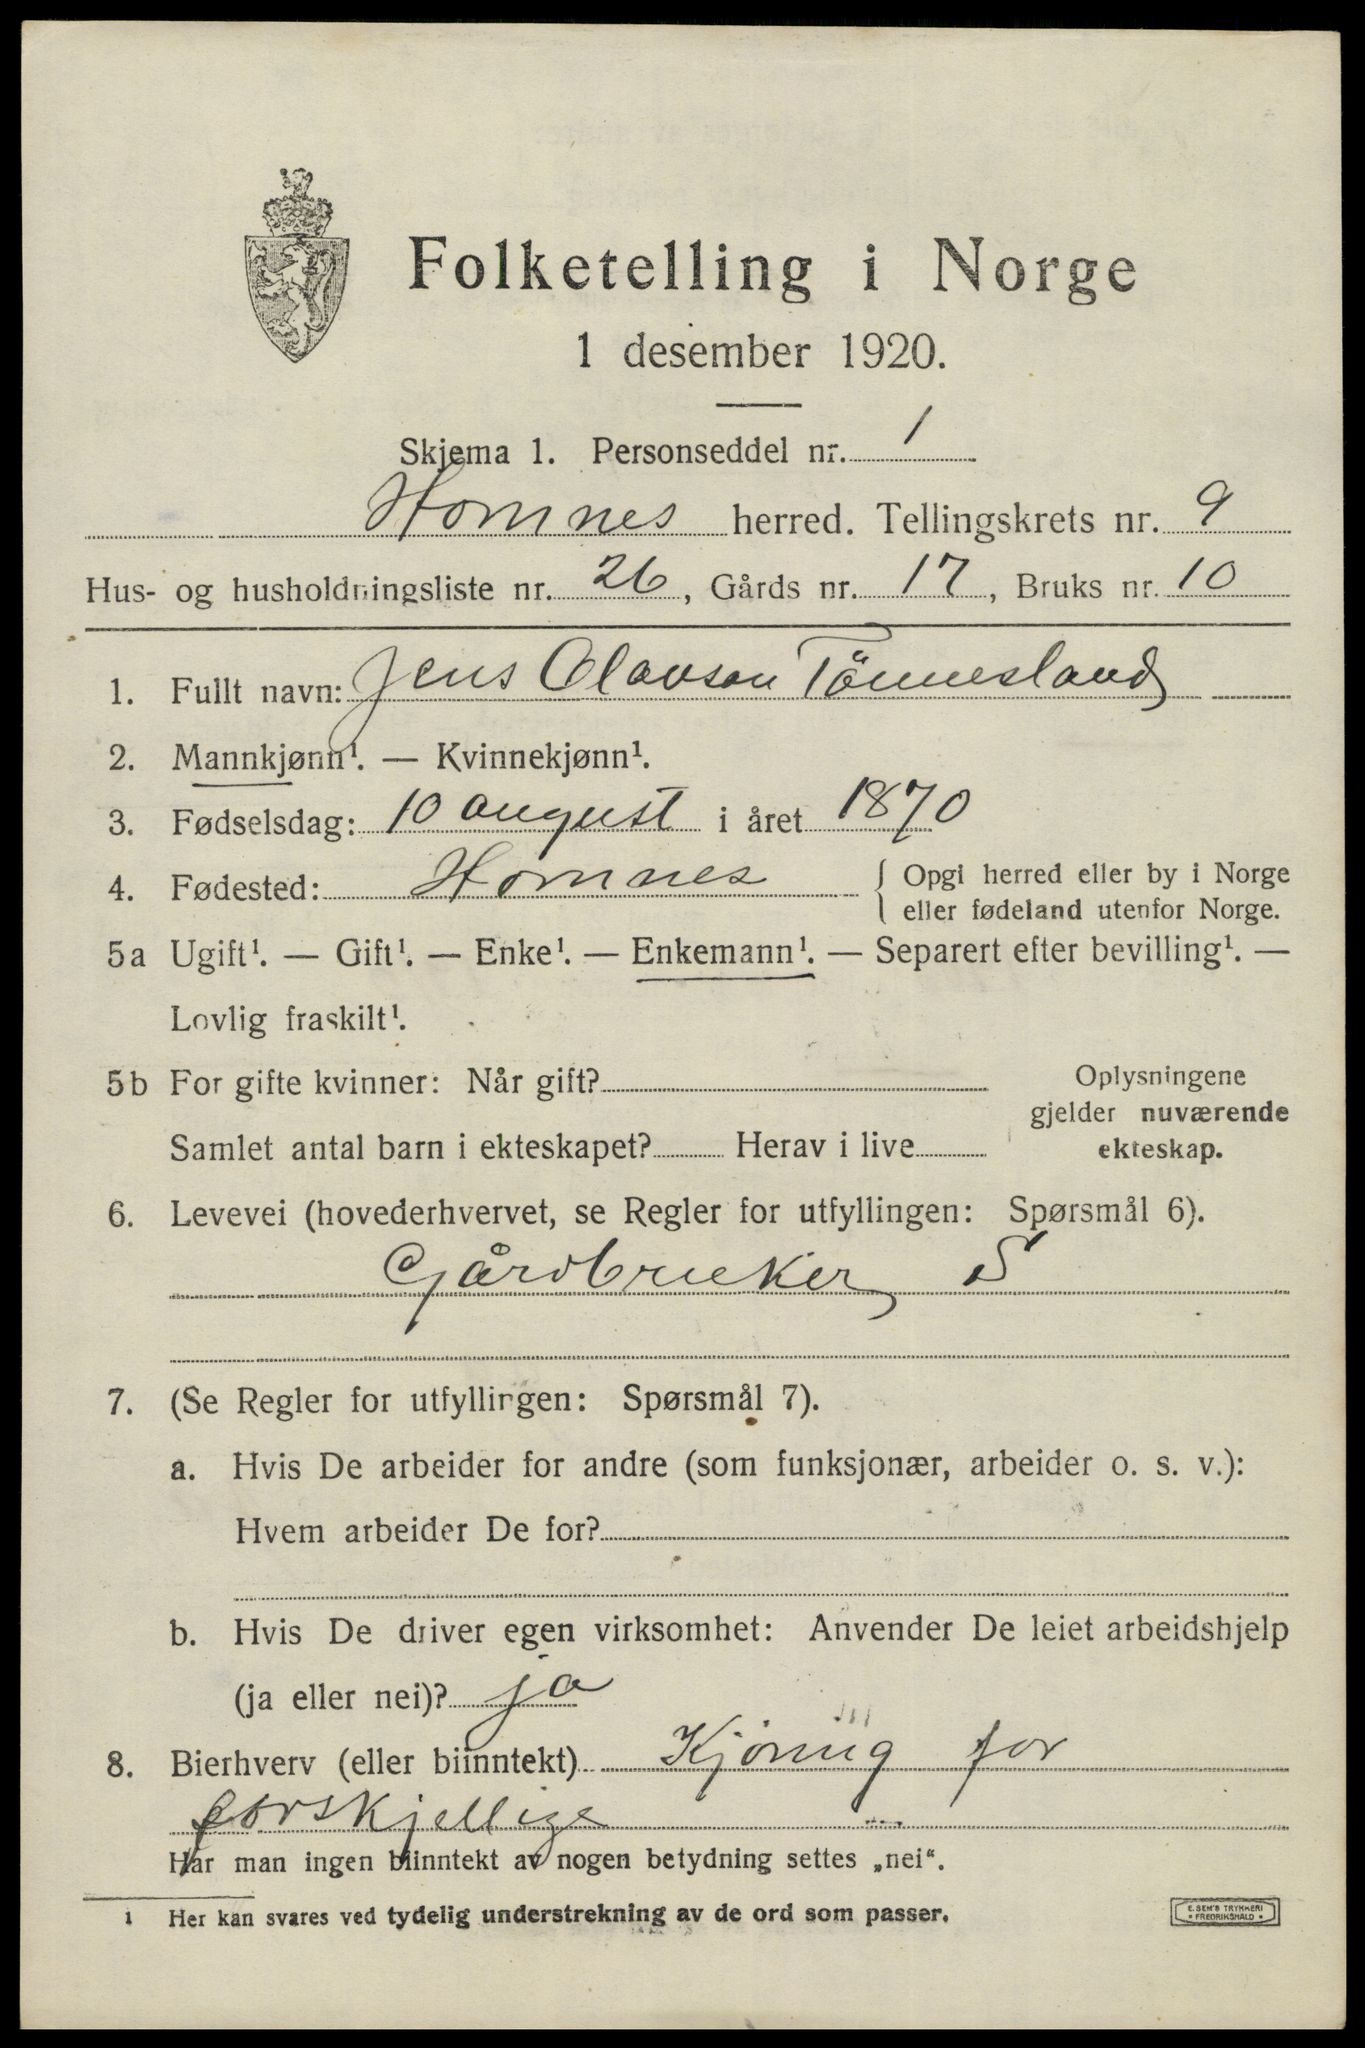 Folketelling i Norge
1 desember 1920.
Skjema 1. Personseddel nr. 1
Homnes herred. Tellingskrets nr. 9
Hus- og husholdningsliste nr. 26, Gårds nr. 17, Bruks nr. 10
1. Fullt navn: Jens Olavson Tönnesland
2. Mannkjønn¹. — Kvinnekjønn¹.
3. Fødselsdag: 10 august i året 1870
4. Fødested: Homnes { Opgi herred eller by i Norge
eller fødeland utenfor Norge.
5a Ugift¹. — Gift¹. — Enke¹. — Enkemann¹. — Separert efter bevilling¹. —
Lovlig fraskilt¹.
5b For gifte kvinner: Når gift?
Samlet antal barn i ekteskapet? Herav i live
Oplysningene
gjelder nuværende
ekteskap.
6. Levevei (hovederhvervet, se Regler for utfyllingen: Spørsmål 6).
Gårdbruker S
7. (Se Regler for utfyllingen: Spørsmål 7).
a. Hvis De arbeider for andre (som funksjonær, arbeider o. s. v.):
Hvem arbeider De for?
b. Hvis De driver egen virksomhet: Anvender De leiet arbeidshjelp
(ja eller nei)? ja
8. Bierhverv (eller biinntekt) Kjöring for
forskjellige
Har man ingen biinntekt av nogen betydning settes „nei“.
1 Her kan svares ved tydelig understrekning av de ord som passer.
E. SEM'S TRYKKERI
• FREDRIKSHALD •